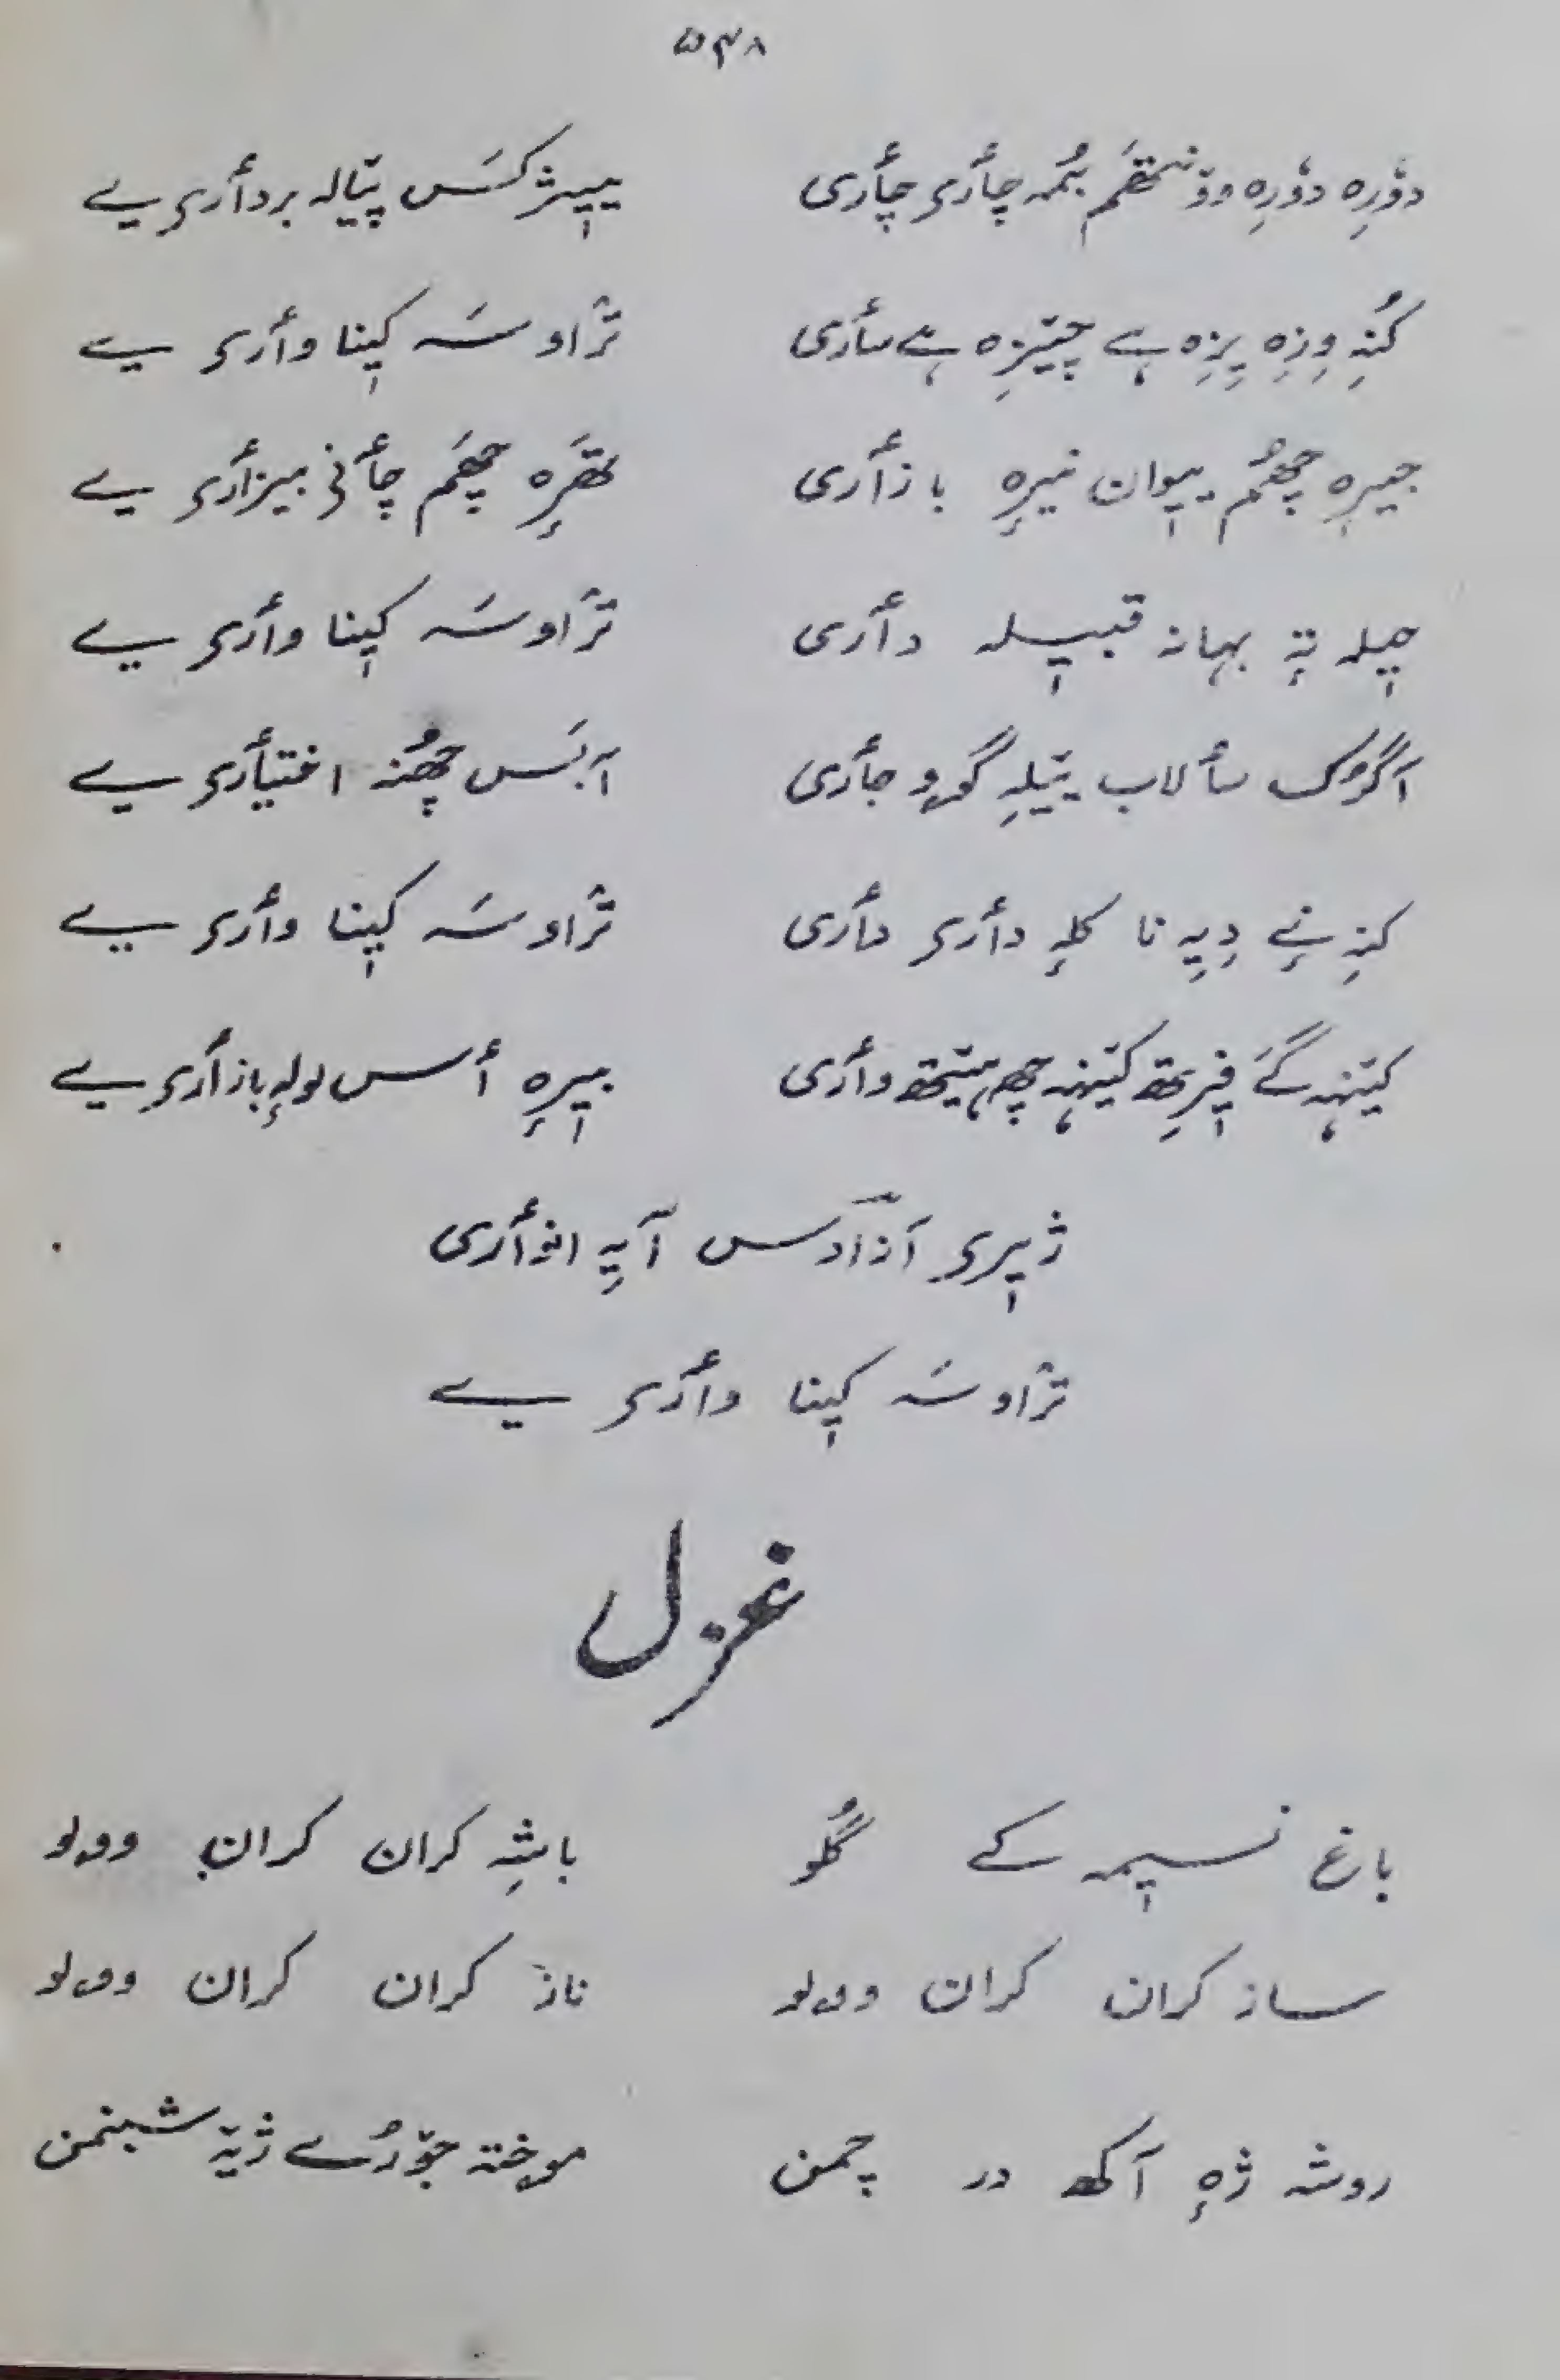 ۵۳۸
دۆرِہ دۆرِہ ووٚنتھَم بُمہ چأری چأری پیٖژ کَس پیٚالہ بردأری یے
کُنہِ وِزِہ پِزِہ ہے چیٚزِہ ہے سأری ترٛاو سَہ کیٖنا وأری یے
جیرِہ چھُم پیوان نیرٕہ بازأری تھَرٕہ چھَم چأنی بیزأری یے
حیلہ تہٕ بہانہ قبیٖلہ دأری ترٛاو سَہ کیٖنا وأری یے
اگرُک سألاب یٚیلہِ گوو جأری آبَس چھُنہ اختیأری یے
کنہِ نے دِیہِ نا کلہٕ دأری دأری ترٛاو سَہ کیٖنا وأری یے
کیٚنہہ گے فیٖرِتھ کیٚنہہ چھِ ہیٚتھ وأری بیٖرٕہ أسس لولہٕ بازأری یے
ژیٖری آزادس آیہِ انوأری
ترٛاو سَہ کیٖنا وأری یے
غزل
باغ نسیٖمہ کے گُلو باشہِ کران کران وولو
ساز کران کران وولو ناز کران کران وولو
روشہ ژٕہ آکھ در چمن موختہ جوٚرُے ژیٚہ شبنمن